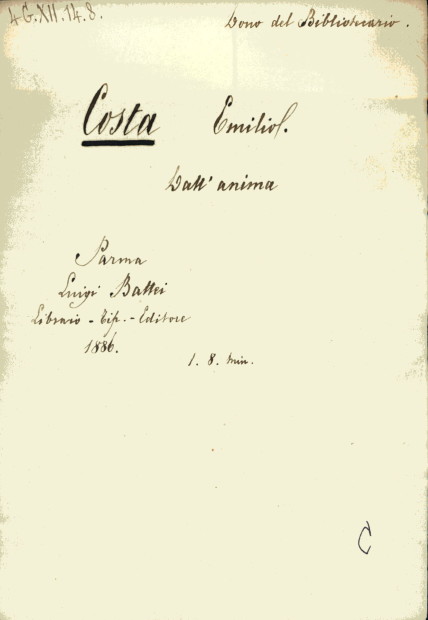 4G.XII.14.8.
Dono del Bibliotecario.
Costa Emilio.
Dall' anima
Parma
Luigi Battei
Libraio - Tip. - Editore
1886.
1. 8. min.
C